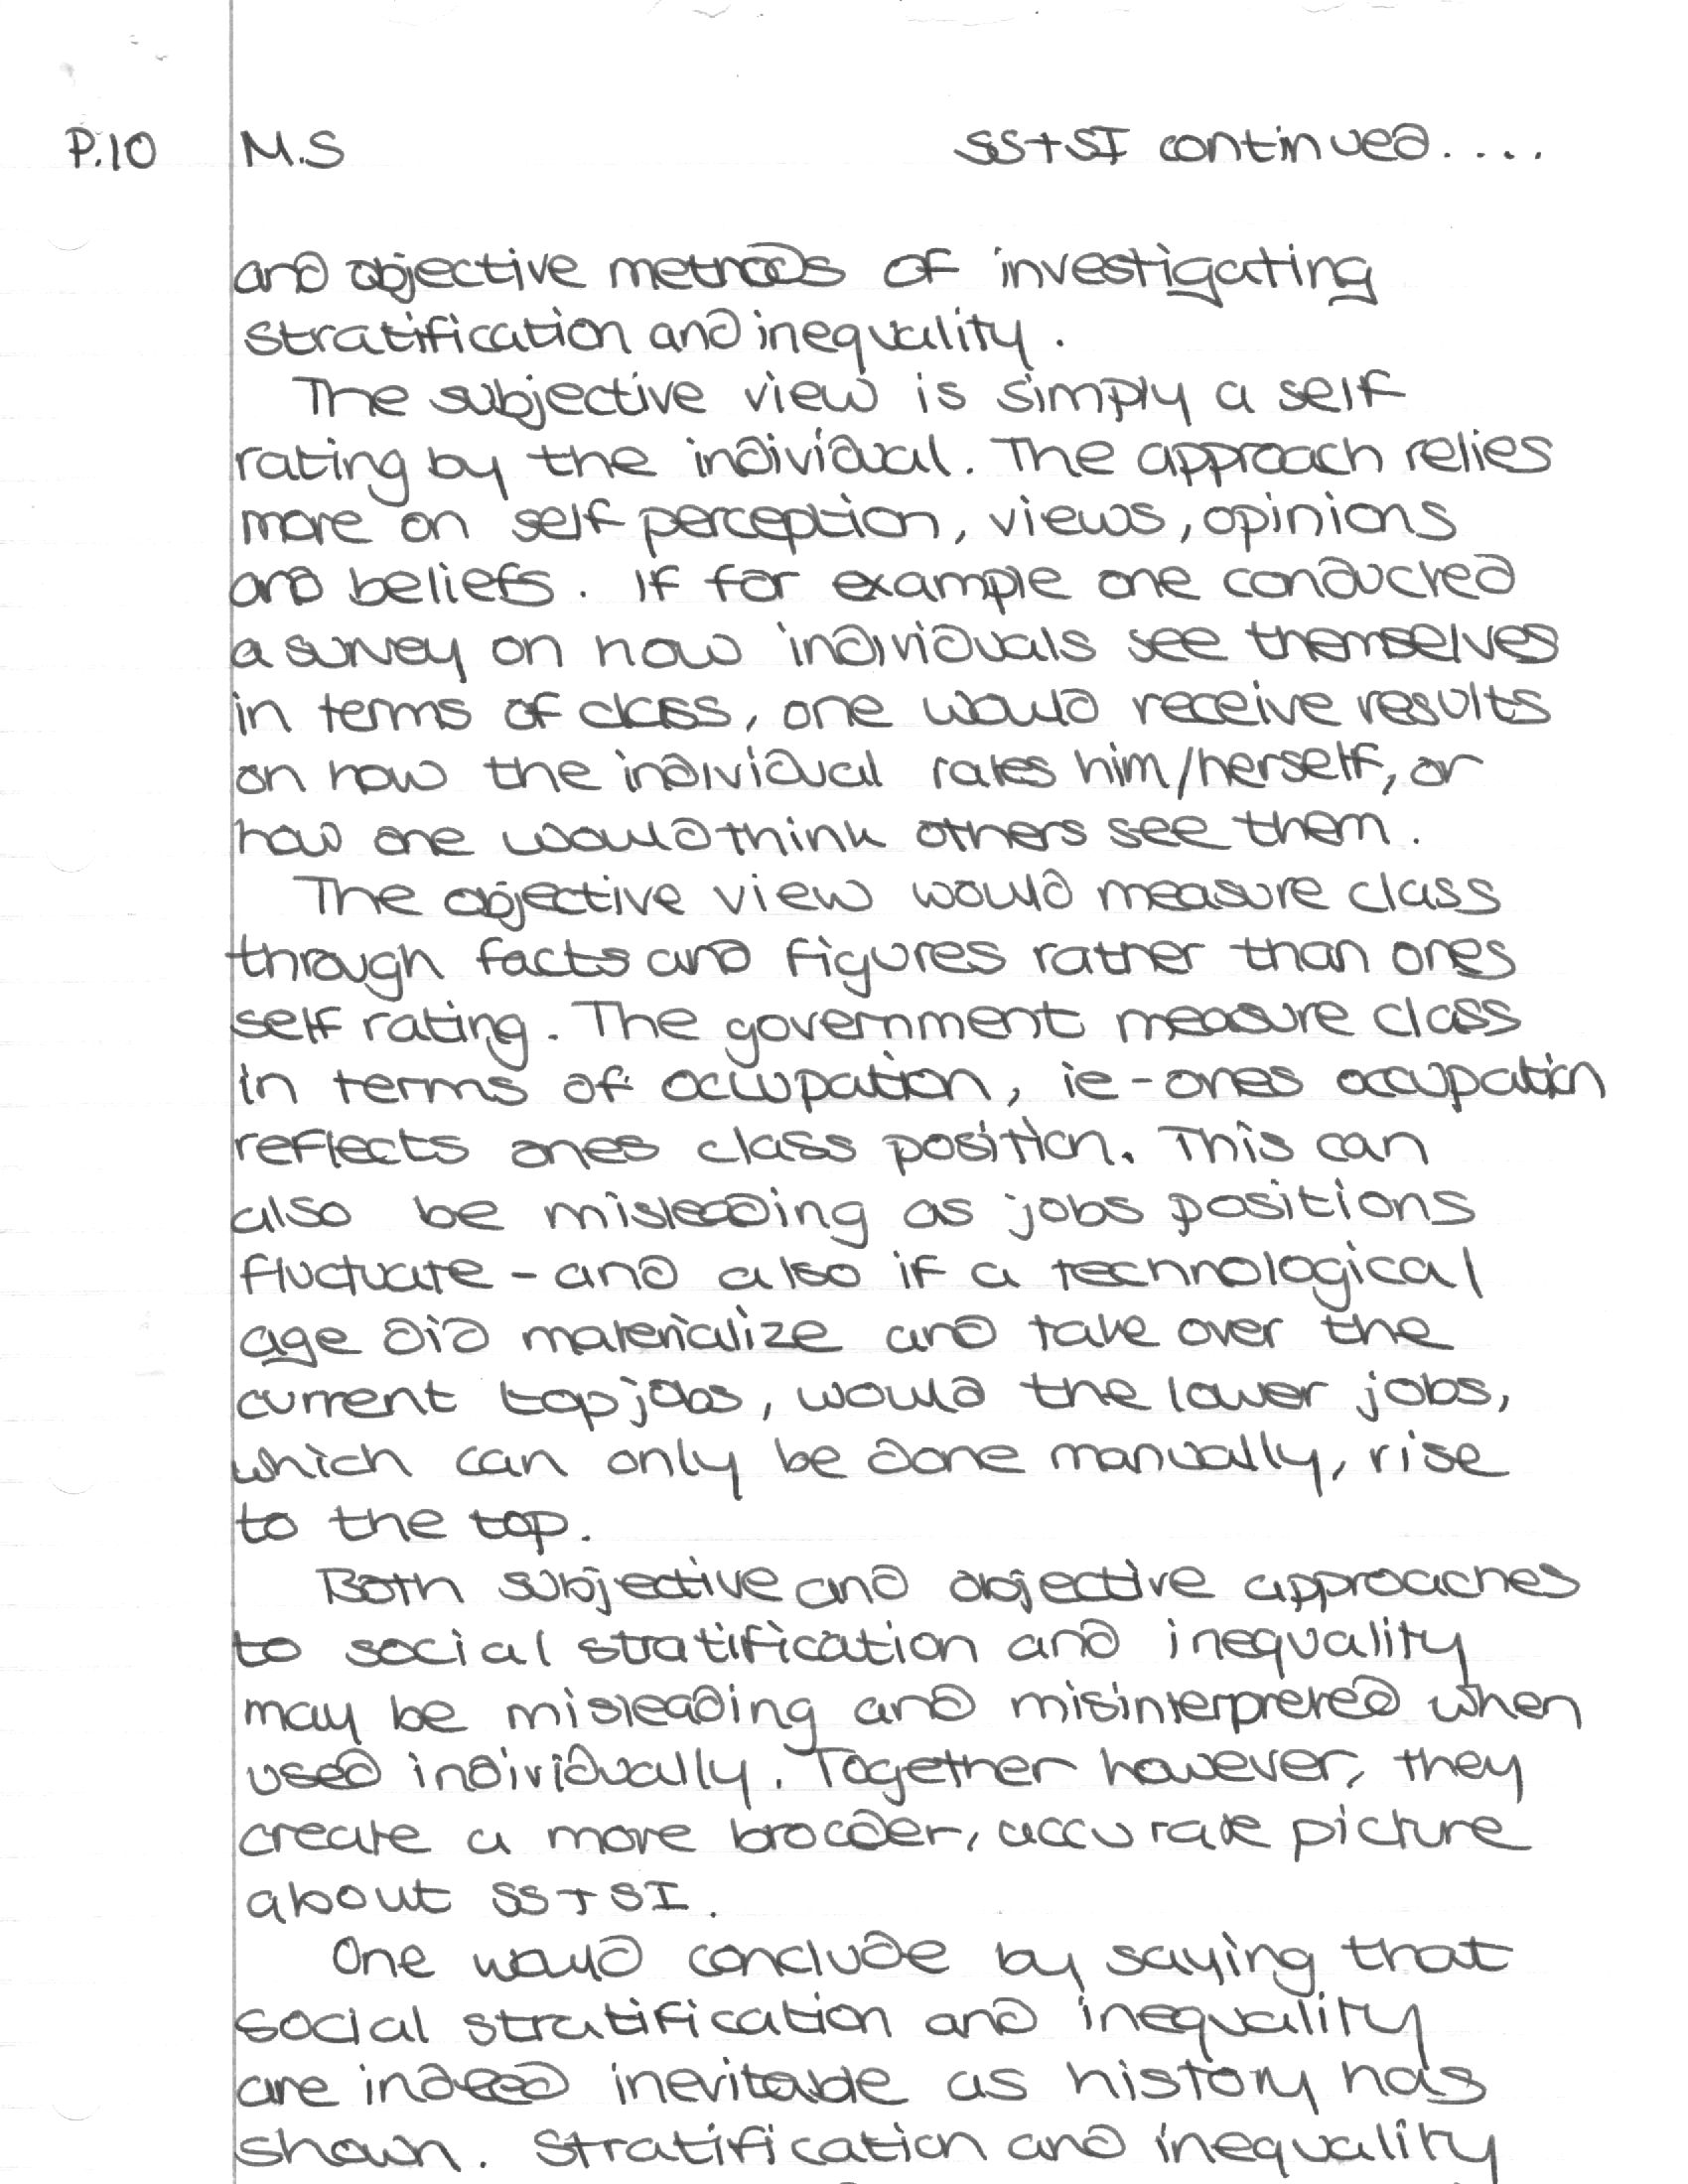 P.10 M.S SS+SI continued....
and objective methods of investigating
stratification and inequality.
The subjective view is simply a self
rating by the individual. The approach relies
more on self perception, views, opinions
and beliefs. If for example one conducted
a survey on how individuals see themselves
in terms of class, one would receive results
on how the individual rates him/herself, or
how one would think others see them.
The objective view would measure class
through facts and figures rather than ones
self rating. The government measure class
in terms of occupation, ie - ones occupation
reflects ones class position. This can
also be misleading as jobs positions
fluctuate - and also if a technological
age did materialize and take over the
current top jobs, would the lower jobs,
which can only be done manually, rise
to the top.
Both subjective and objective approaches
to social stratification and inequality
may be misleading and misinterpreted when
used individually. Together however, they
create a more broader, accurate picture
about SS+SI.
One would conclude by saying that
social stratification and inequality
are indeed inevitable as history has
shown. Stratification and inequality